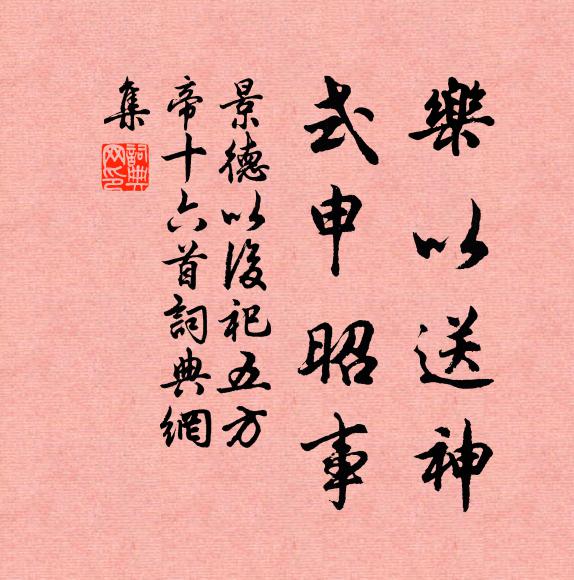 樂以送神
式申昭事
景德以後祀五方
帝十六首詞典網
集
詞典網印